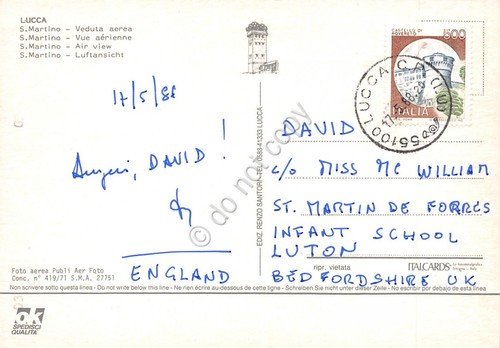 LUCCA
S.Martino - Veduta aerea
S.Martino - Vue aérienne
S.Martino - Air view
S.Martino - Luftansicht
17/5/88
Auguri, DAVID!
ENGLAND
Foto aerea Publi Aer Foto
Conc. n° 419/71 S.M.A. 27751
EDIZ. RENZO SANTORI - TEL. 0583-41333 LUCCA
do not copy
CASTELLO DI ROVERETO
500
ITALIA
55100 LUCCA C.P.
DAVID
C/O MISS MC WILLIAM
ST. MARTIN DE FORRES
INFANT SCHOOL
LUTON
BEDFORDSHIRE UK
ripr. vietata
ITALCARDS
Bologna - Italy
Non scrivere sotto questa linea - Do not write below this line - Ne rien écrire au-dessous de cette ligne - Schreiben Sie nicht unter dieser Zeile - No escribir por debajo de esta linea
ok
SPEDISCI
QUALITÀ